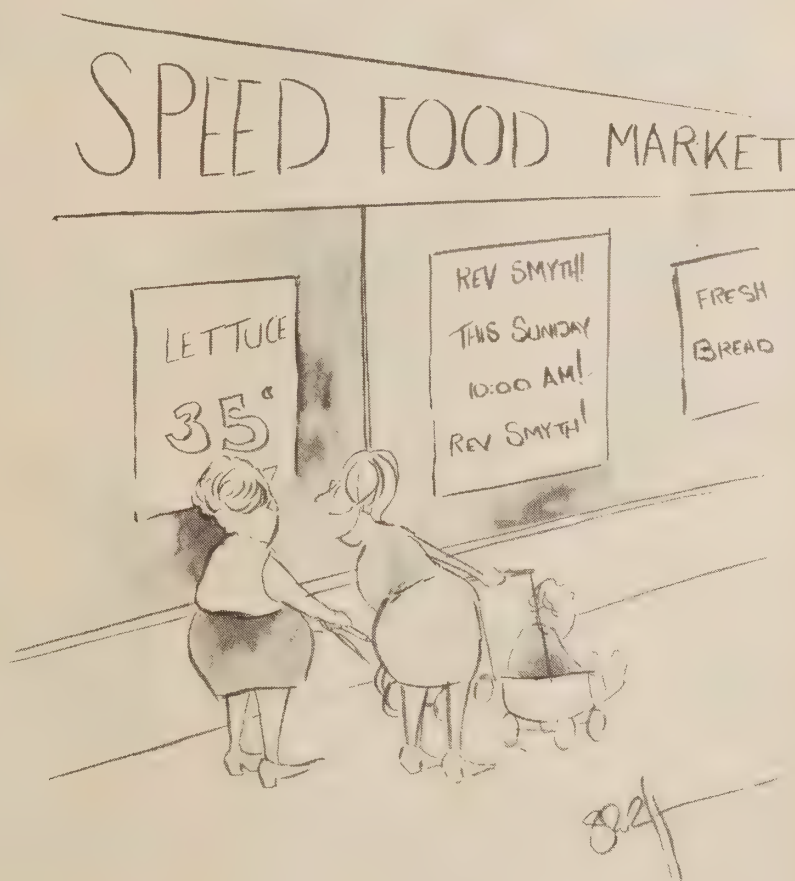 SPEED FOOD MARKET
LETTUCE
35¢
REV SMYTH!
THIS SUNDAY
10:00 AM!
REV SMYTH!
FRESH
BREAD